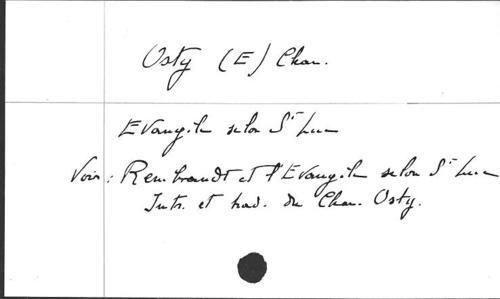 Osty (E) Chan.
Evangile selon St Luc
Voir : Rembrandt et l'Evangile selon St Luc
Intr. et trad. du Chan. Osty.